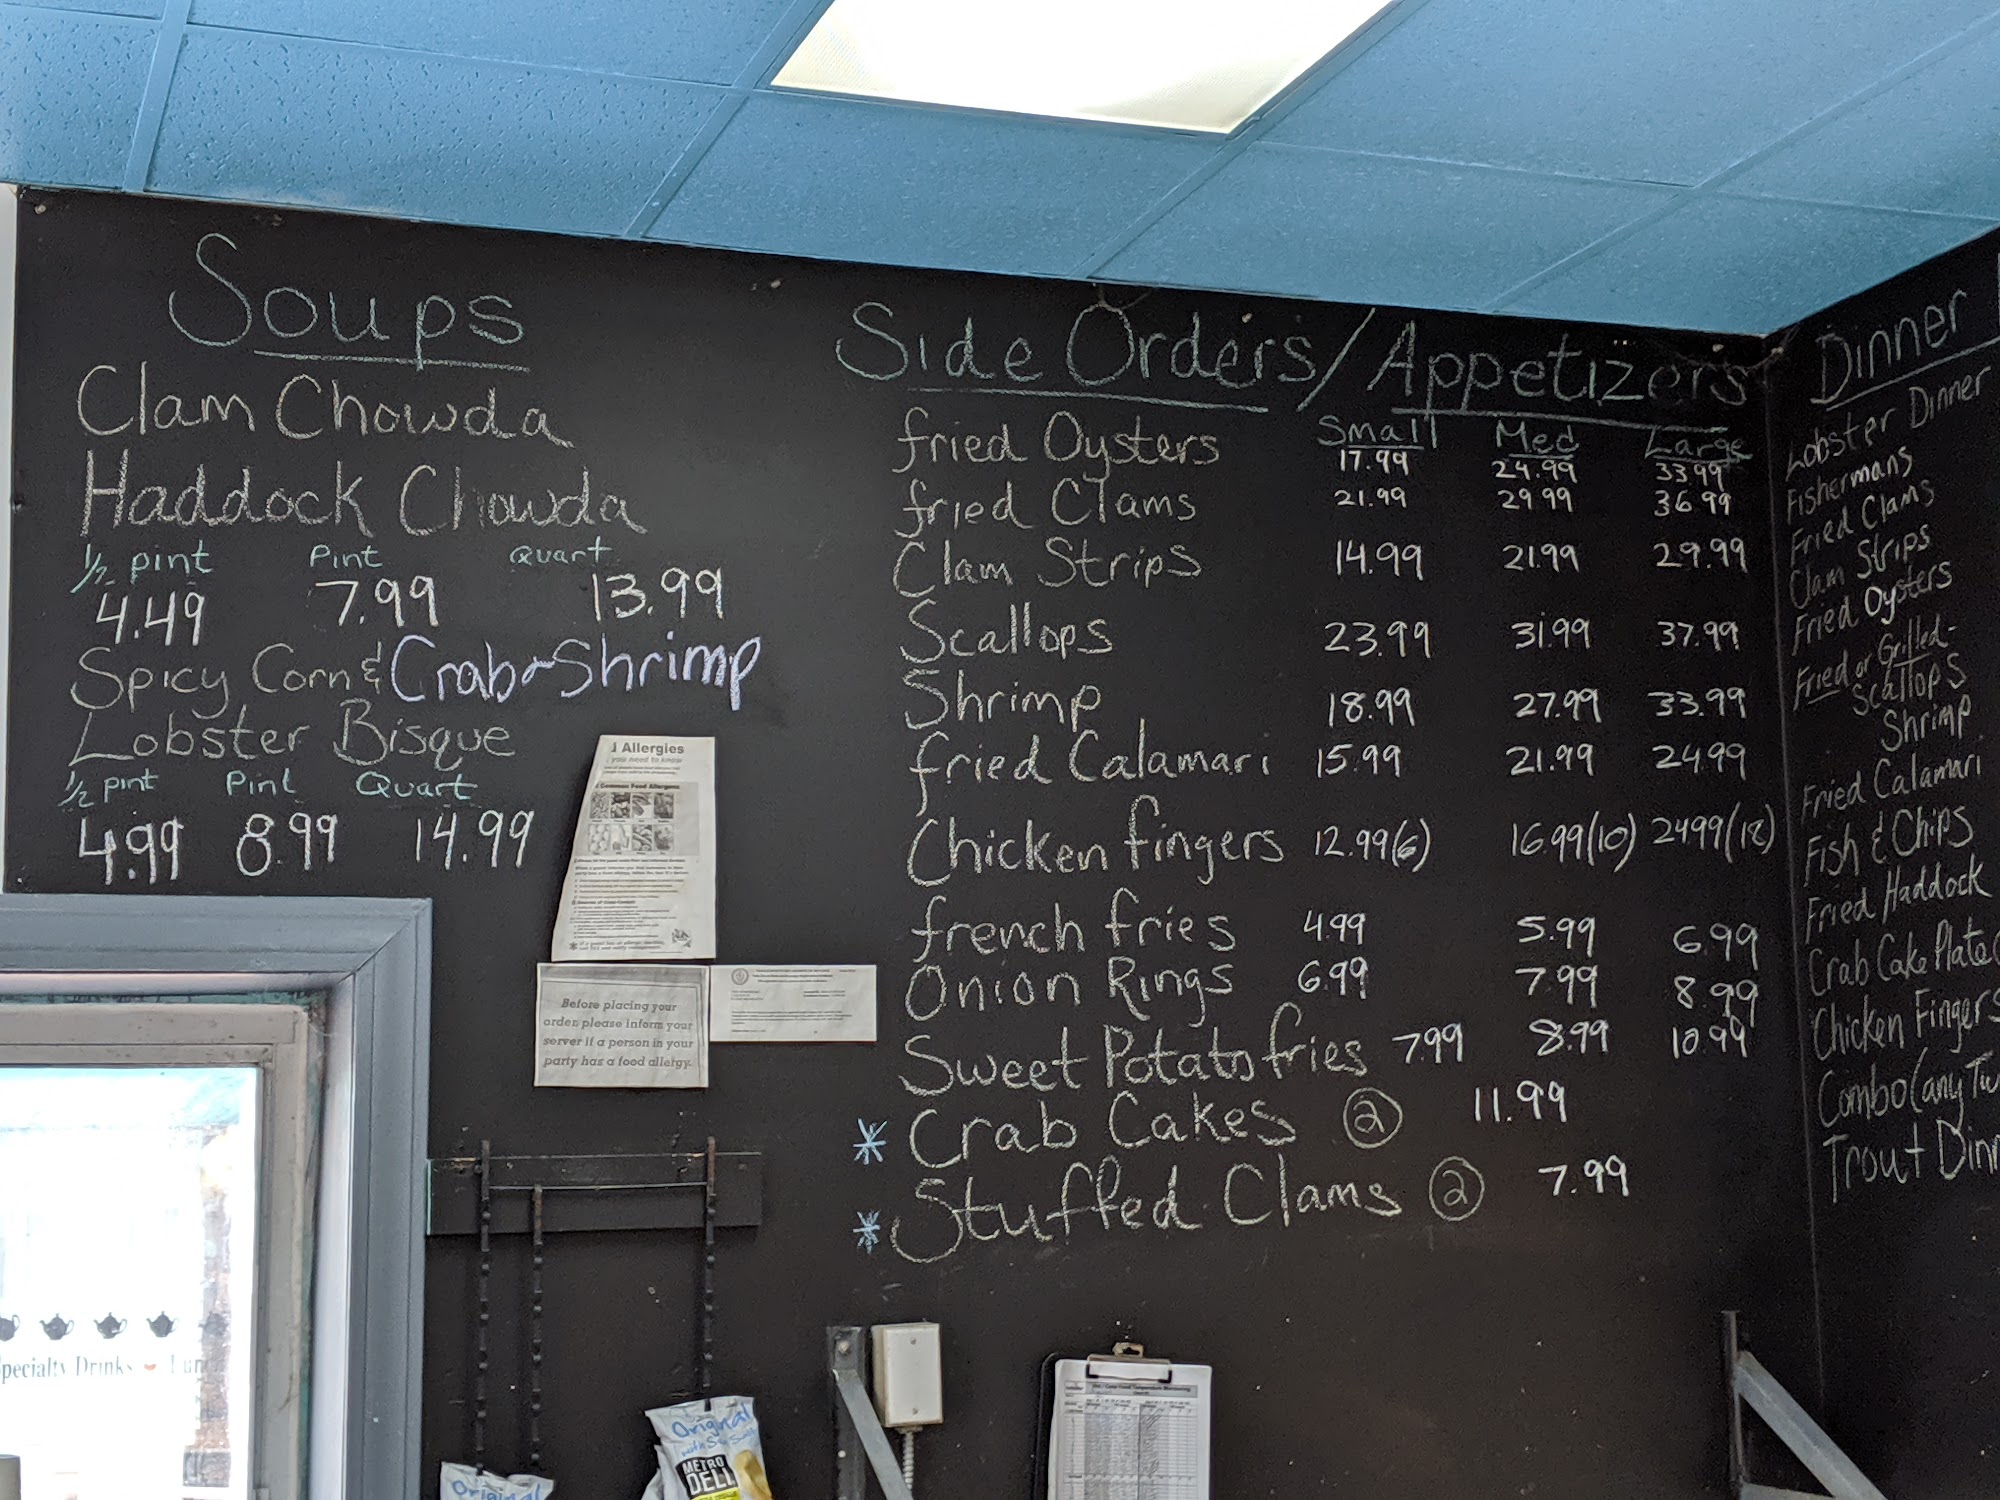 Soups
Clam Chowda
Haddock Chowda
1/2 pint Pint Quart
4.49 7.99 13.99
Spicy Corn & Crab & Shrimp
Lobster Bisque
1/2 pint Pint Quart
4.99 8.99 14.99
Allergies
you need to know
Common Food Allergens
Before placing your
order, please inform your
server if a person in your
party has a food allergy.
Side Orders/Appetizers
Small Med Large
fried Oysters 17.99 24.99 33.99
fried Clams 21.99 29.99 36.99
Clam Strips 14.99 21.99 29.99
Scallops 23.99 31.99 37.99
Shrimp 18.99 27.99 33.99
fried Calamari 15.99 21.99 24.99
Chicken fingers 12.99(6) 16.99(10) 24.99(18)
french fries 4.99 5.99 6.99
Onion Rings 6.99 7.99 8.99
Sweet Potato fries 7.99 8.99 10.99
* Crab Cakes 2 11.99
* Stuffed Clams 2 7.99
Dinner
Lobster Dinner
Fishermans
Fried Clams
Clam Strips
Fried Oysters
Fried or Grilled-
Scallops
Shrimp
Fried Calamari
Fish & Chips
Fried Haddock
Crab Cake Plate (
Chicken Fingers
Combo (any Tw
Trout Dinn
pecialty Drinks
Original
METRO
DELI
Original